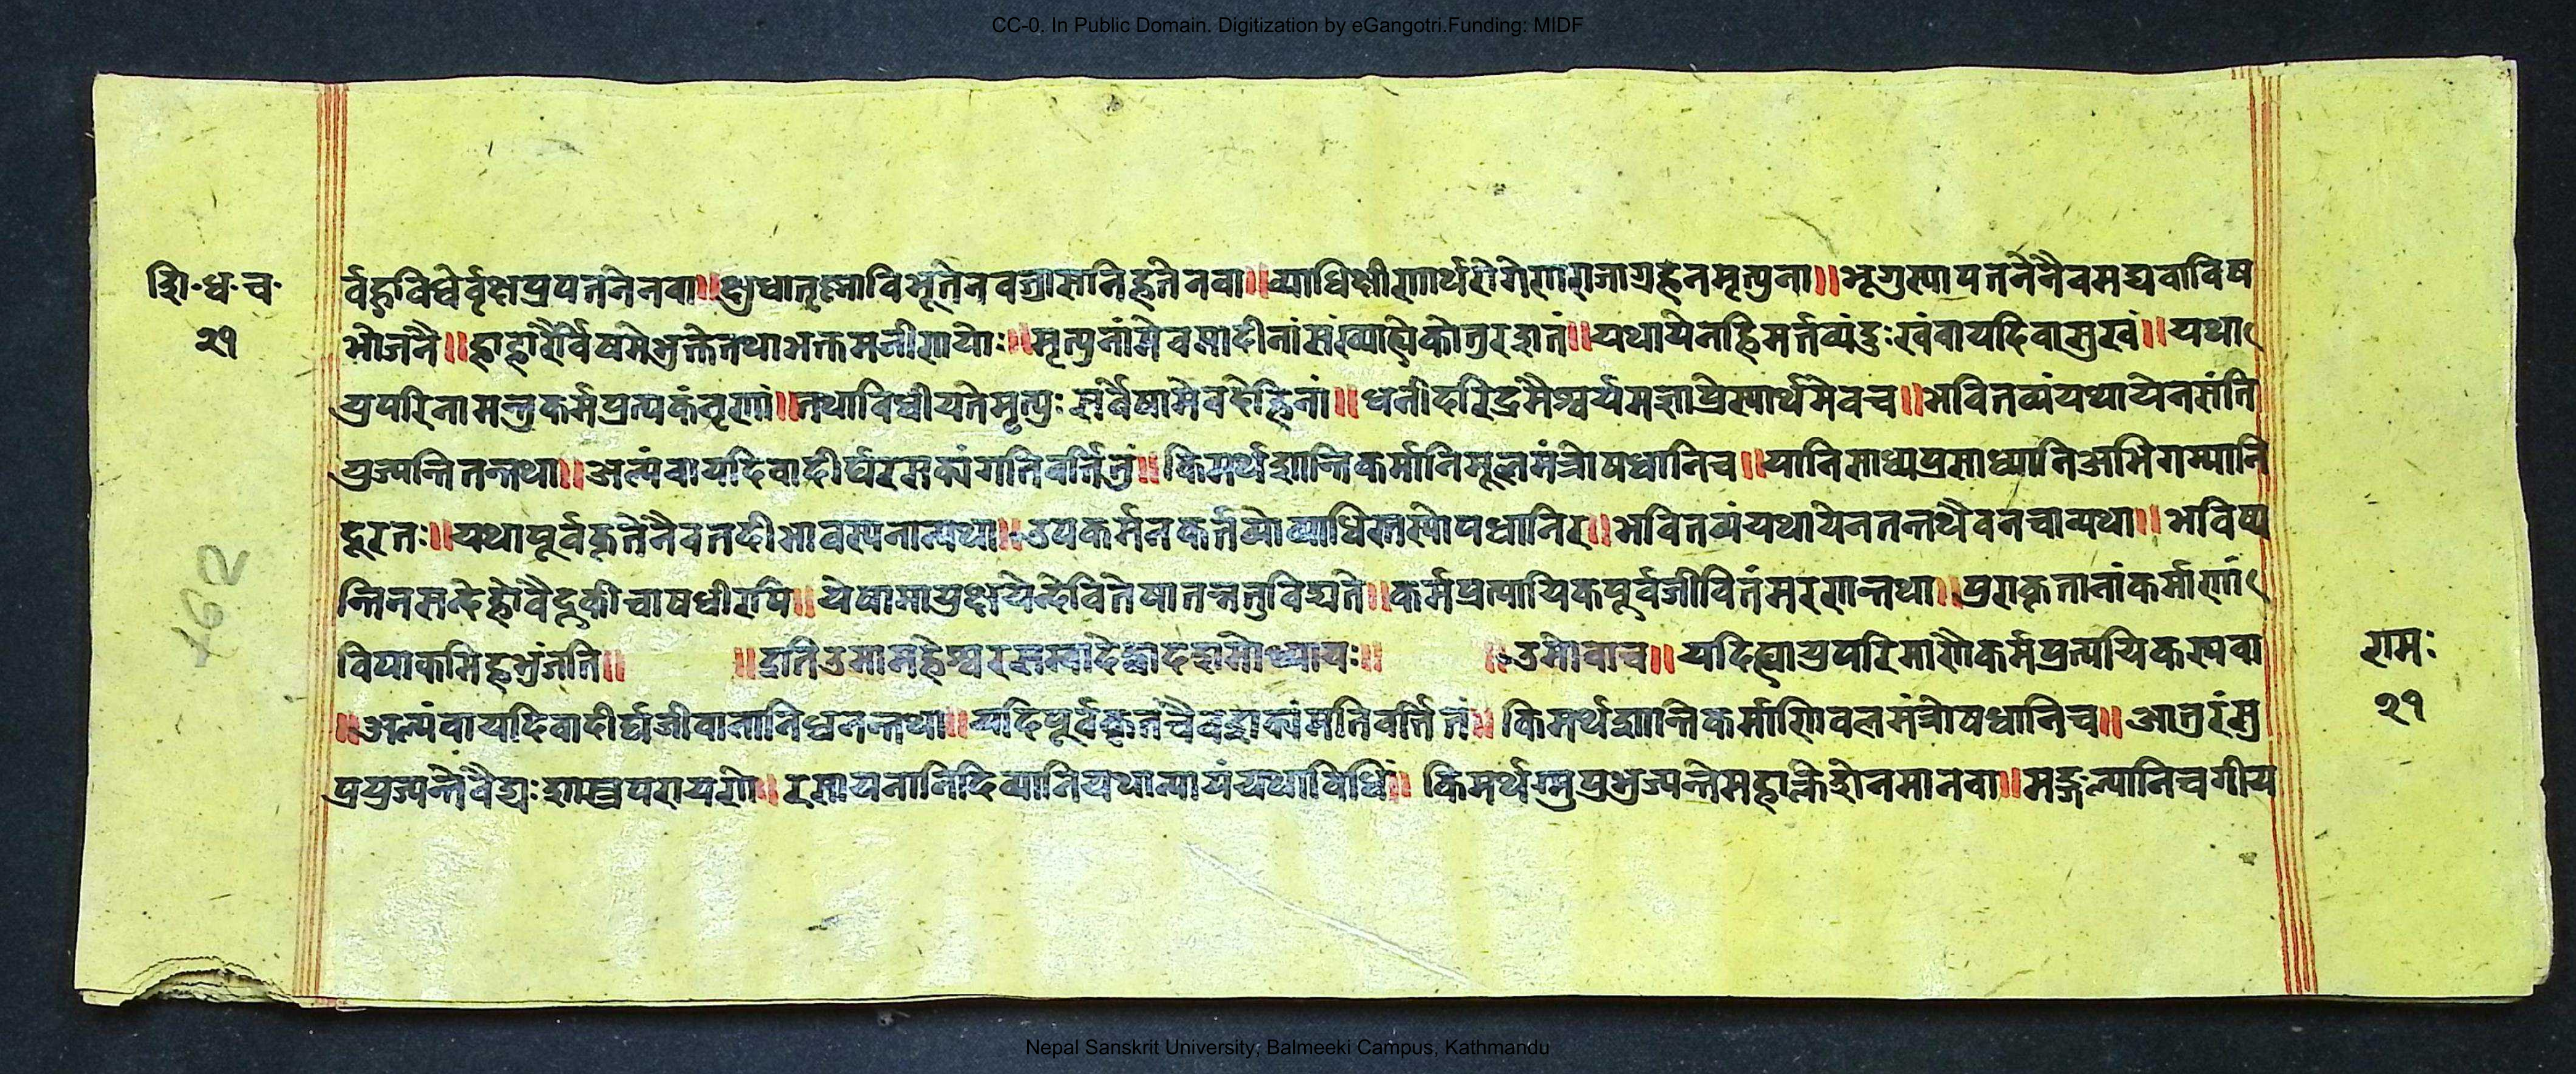 CC-0. In Public Domain. Digitization by eGangotri.Funding: MIDF
शि॰ध॰च॰
२१
र्वहुविधेर्वृक्षप्रपतनेनवा॥क्षुधातृष्णाविभूतेनवज्रासनिहतेनवा॥व्याधिक्षीणार्थरोगेणराजाग्रहेनमृत्युना॥भृगुस्यापतनेनैवमद्यवाविष
भोजनै॥हाहारैर्विषमेभुक्तेतथाभक्तमजीर्णयोः॥मृत्युनांमेवमादीनांसंख्याह्येकोतुरशतं॥यथायेनहिमर्त्तव्यंदुःखंवायदिवासुखं॥यथा
युपरिनामन्तुकर्मप्रत्यकंनृणां॥तथाविधीयतेमृत्युःसर्वेषामेवदेहिनां॥धनीदरिद्रमैश्वर्यमज्ञाप्रेस्यार्थमेवच॥भवितव्यंयथायेनसंति
युज्यन्तितन्तथा॥अल्पंवायदिवादीर्घरसक्यंगतिवर्त्तितुं॥किमर्थशान्तिकर्मानिमूलमंत्रोषधानिच॥यानिसाध्यप्रसाध्यानिअभिगम्यानि
दूरतः॥यथापूर्वकृतेनैवतदीभावस्यनान्यथा॥उपकर्मनकर्त्तव्योव्याधिस्तस्योपधानिर॥भवितव्यंयथायेनतन्तथैवनचान्यथा॥भविष्य
न्तिनसन्देहोवैद्रुकीचाषधीरपि॥येषामायुक्षयेन्देवितेषातन्त्रतुविद्यते॥कर्मप्रत्यायिकपूर्वजीवितंमरणन्तथा॥पुराकृतानांकर्माणां
विपाकमिहभुंजति॥ ॥इतिउमामहेश्वरसम्वादेद्वादशमोध्यायः॥ ॥उमोवाच॥यदिह्यायुपरिमाणैकर्मप्रत्ययिकस्यवा
॥अल्पंवायदिवादीर्घजीवानानिधनन्तथा॥यदिपूर्वकृतंचैवशक्यंमतिवर्त्तितं॥किमर्थशान्तिकर्माणिवलमंत्रोषधानिच॥आतुरंसु
प्रयुज्यन्तेवैद्यःशास्त्रपरायणे॥रसायनानिदिव्यानियथान्यायंयथाविधिं॥किमर्थम्प्रभुज्यन्तेमहाक्लेशेनमानवा॥मङ्गल्यानिचगीय
रामः
२१
Nepal Sanskrit University, Balmeeki Campus, Kathmandu